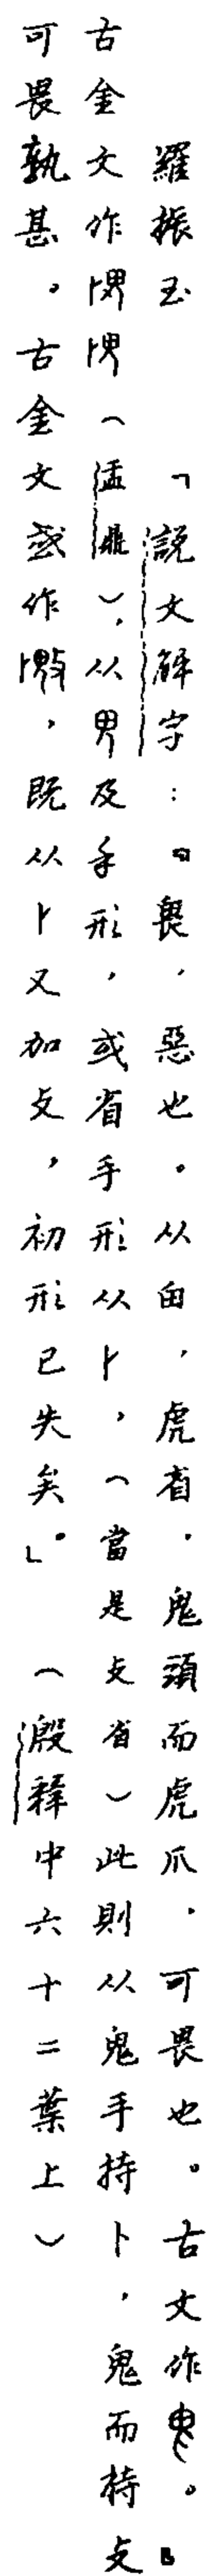 羅振玉「說文解字:『畏,惡也。从甶,虎省。鬼頭而虎爪,可畏也。古文作。』
古金文作(盂鼎),从甶及手形,或省手形从卜,(當是攴省)此則从鬼手持卜,鬼而持攴
可畏孰甚。古金文或作,既从卜又加攴,初形已失矣。」(殷釋中六十二葉上)